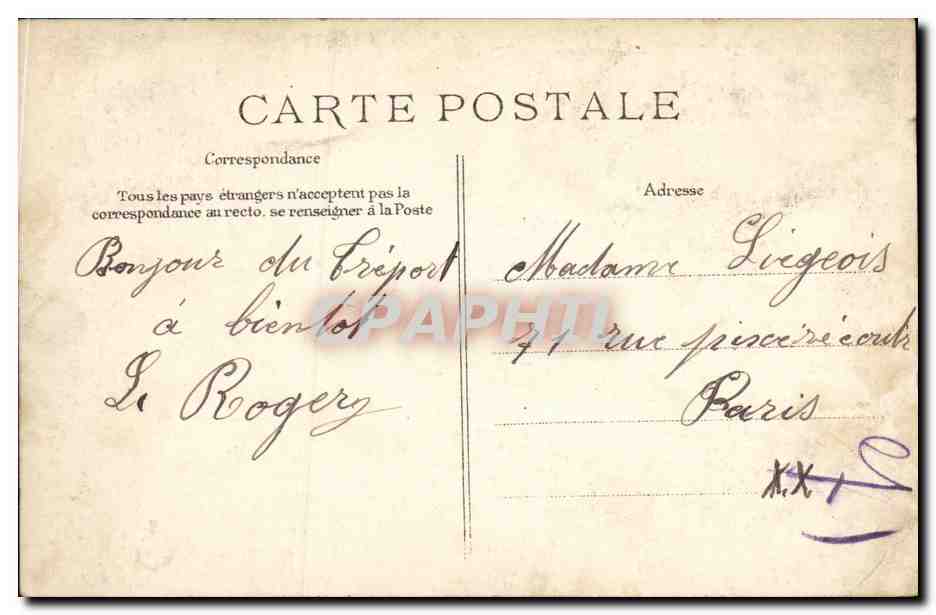 CARTE POSTALE
Correspondance
Tous les pays étrangers n'acceptent pas la
correspondance au recto, se renseigner à la Poste
Bonjour du Tréport
à bientot
L. Rogery
Adresse
Madame Liegeois
71 rue pixérécourt
Paris
XX
CPAPHIL